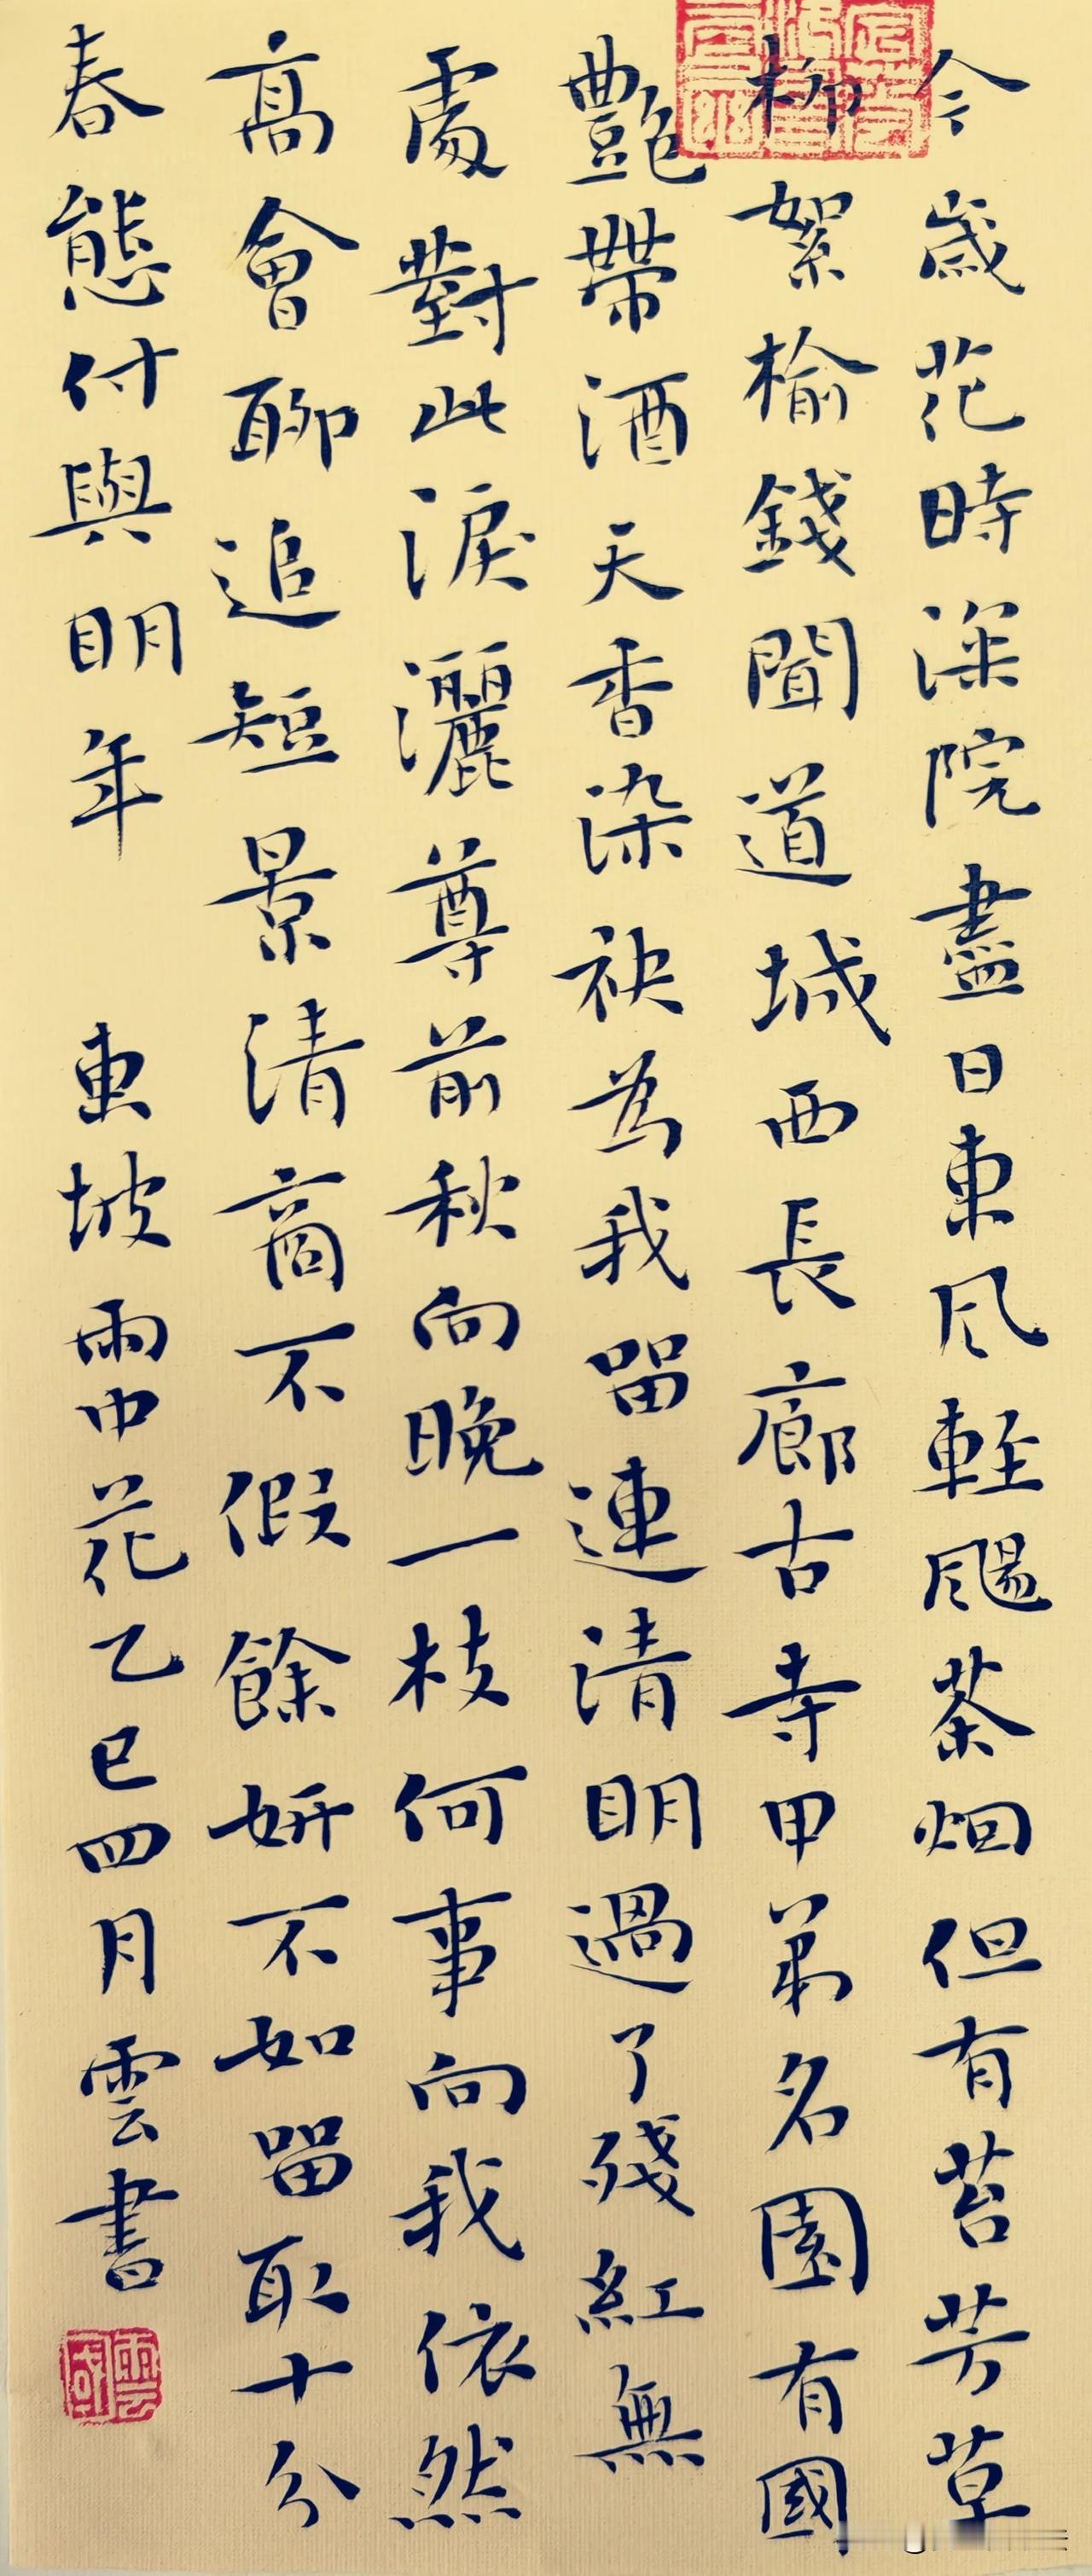 今歲花時深院盡日東風輕颺茶烟但有苔芳草
柳絮榆錢聞道城西長廊古寺甲第名園有國
艷帶酒天香染袂為我留連清明過了殘紅無
處對此淚灑尊前秋向晚一枝何事向我依然
高會聊追短景清商不假餘妍不如留取十分
春態付與明年　東坡雨中花乙巳四月雲書